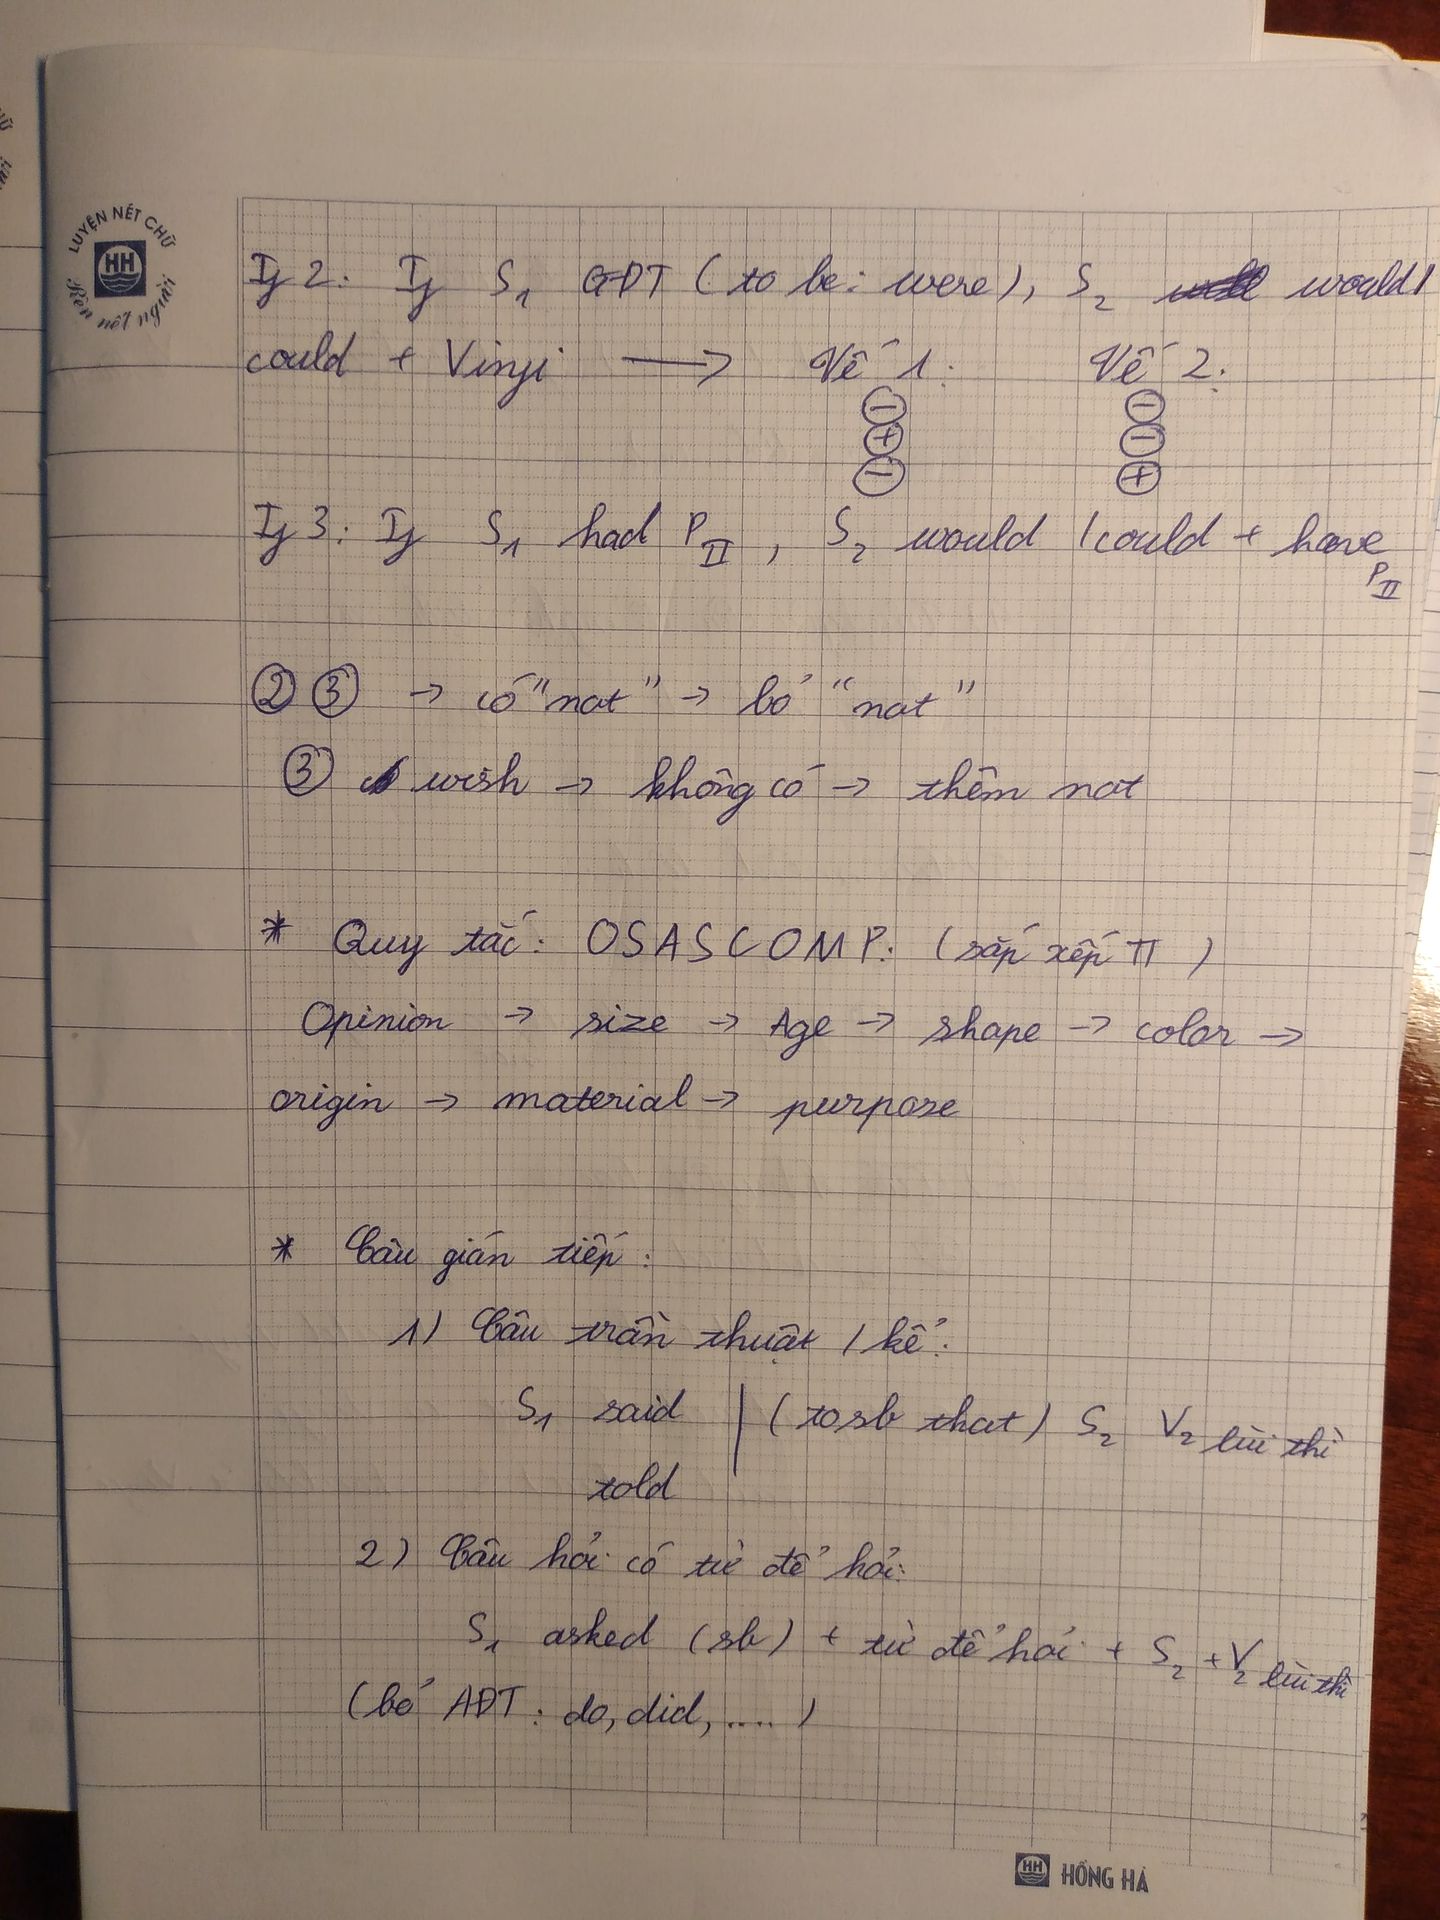 LUYỆN NÉT CHỮ
HH
Rèn nết người
If 2: If S1 QFDT (to be: were), S2 would /
could + Vinfi → Vế 1: Vế 2:
⊖ ⊖
⊕ ⊖
⊖ ⊕
If 3: If S1 had PII, S2 would / could + have
PII
② ③ → có "not" → bỏ "not"
③ wish → không có → thêm not
* Quy tắc: OSASCOMP: (sắp xếp TT)
Opinion → size → Age → shape → color →
origin → material → purpose
* Câu gián tiếp:
1) Câu trần thuật / kể:
S1 said | (to sb that) S2 V2 lùi thì
told
2) Câu hỏi có từ để hỏi:
S1 asked (sb) + từ để hỏi + S2 + V2 lùi thì
(bỏ AĐT: do, did, ....)
HH HỒNG HÀ